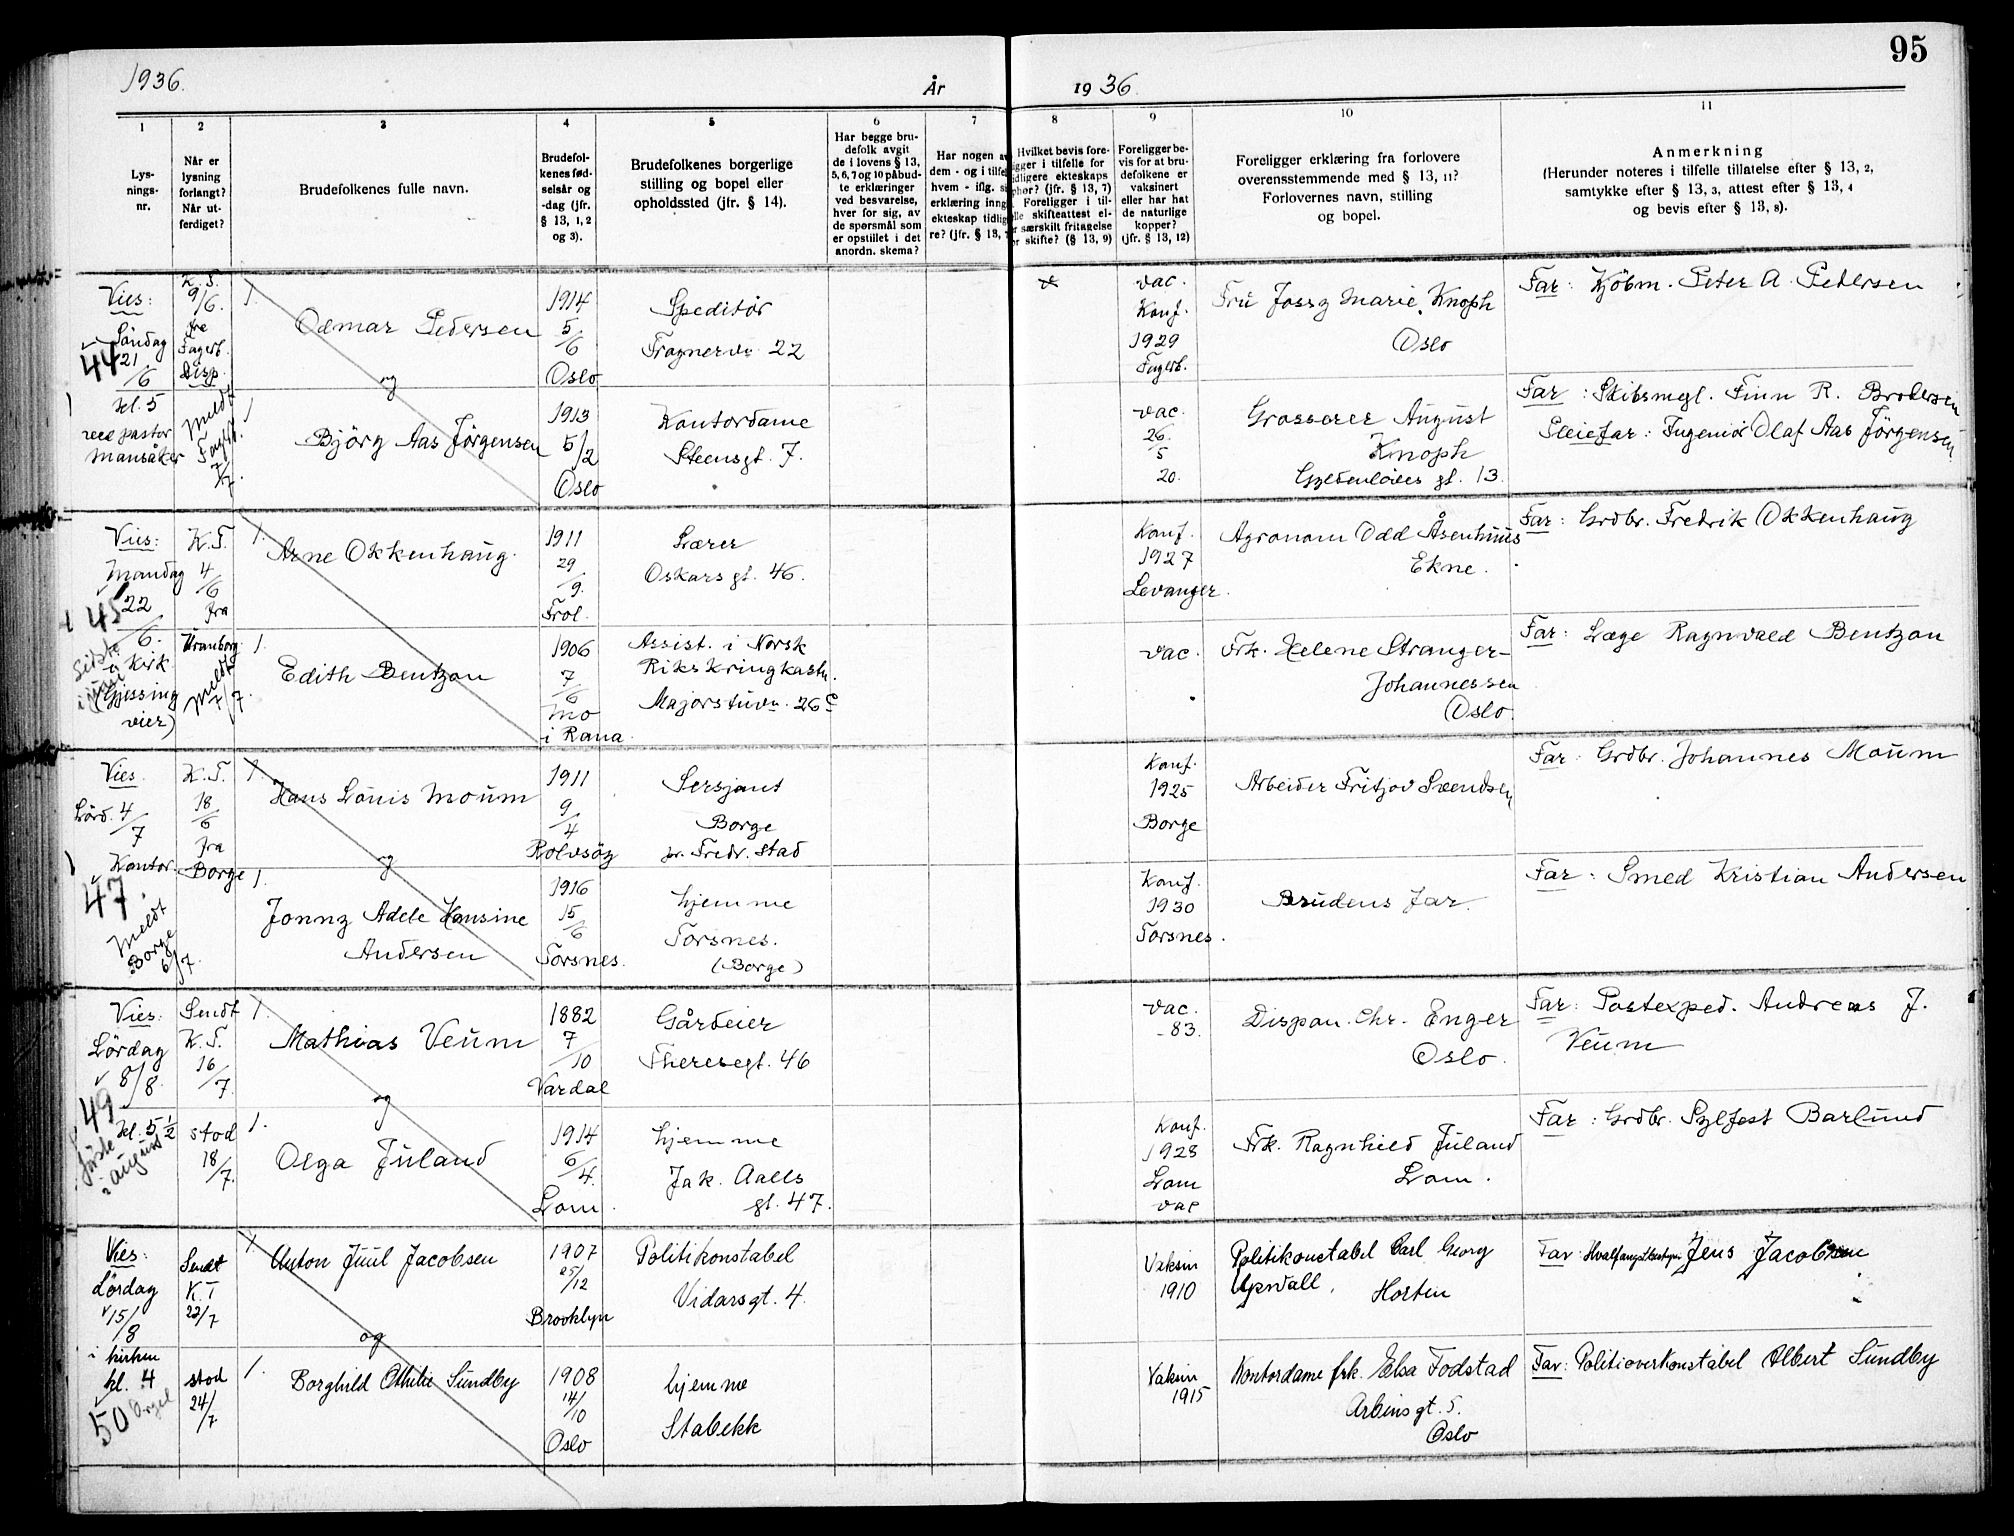 95
1936.
År
19 36.
1
2
3
4
5
6
7
8
9
10
11
Lys-
nings-
nr.
Når er
lysning
forlangt?
Når ut-
ferdiget?
Brudefolkenes fulle navn.
Brudefol-
kenes fød-
selsår og
-dag (jfr.
§ 13, 1, 2
og 3).
Brudefolkenes borgerlige
stilling og bopel eller
opholdssted (jfr. § 14).
Har begge bru-
defolk avgit
de i lovens § 13,
5, 6, 7 og 10 påbud-
te erklæringer
ved besvarelse,
hver for sig, av
de spørsmål som
er opstillet i det
anordn. skema?
Har nogen a
dem - og i tilfe
hvem - iflg. s
erklæring inng
ekteskap tidlig
re? (jfr. § 13,
Hvilket bevis fore-
igger i tilfelle for
idligere ekteskaps
phør? (jfr. § 13, 7)
Foreligger i til-
elle skifteattest el-
r særskilt fritagelse
or skifte? (§ 13, 9)
Foreligger be-
vis for at bru-
defolkene er
vaksinert
eller har hat
de naturlige
kopper?
(jfr. § 13, 12)
Foreligger erklæring fra forlovere
overensstemmende med § 13, 11?
Forlovernes navn, stilling
og bopel.
Anmerkning
(Herunder noteres i tilfelle tillatelse efter § 13, 2,
samtykke efter § 13, 3, attest efter § 13, 4
og bevis efter § 13, 8).
Vies:
Söndag
44
21/6
kl. 5
ved pastor
Mansåker
K. T.
9/6.
fra
Fagerb.
Disp.
Meldt
Fagerb.
7/7.
1.
Odmar Pedersen
og
1
Björg Aas Jörgensen
1914
5/6
Oslo
1913
5/2
Oslo
Speditör
Frognervn. 22
Kontordame
Steensgt. 7.
vac.
Konf.
1929
Fagerb.
vac.
26/5
20.
Fru Jossy Marie Knoph
Oslo
Grosserer August
Knoph
Gyldenlöves gt. 13.
Far: Kjöbm. Peter A. Pedersen
Far: Skibsmegl. Finn R. Brodersen
Pleiefar: Ingeniör Olaf Aas Jörgensen
Vies:
Mandag
45
22/6.
siste
i juni
i Kirk.
(Gjessing
vier)
K.T.
4/6
fra
Uranborg
Meldt
7/7.
1.
Arne Okkenhaug.
1.
Edith Bentzon
1911
29/9.
Frol.
1906
7/6
Mo
i Rana.
Lærer
Oskarsgt. 46.
Assist. i Norsk
Rikskringkastn.
Majorstuvn. 26c
Konf.
1927
Levanger.
vac.
Agronom Odd Åsenhuus
Ekne.
Frk. Helene Stranger-
Johannessen
Oslo.
Far: Grdbr. Fredrik Okkenhaug
Far: Læge Ragnvald Bentzon
Vies.
Lörd. 4/7
Kontor.
47.
Meldt
Borge
6/7.
K.T.
18/6
fra
Borge
1.
Hans Louis Moum
og
1.
Jonny Adele Hansine
Andersen
1911
9/4
Rolvsöy
1916
15/6
Torsnes.
Sersjant
Borge
pr. Fredr.stad
hjemme
Torsnes.
(Borge)
Konf.
1925
Borge
Konf.
1930
Torsnes.
Arbeider Fritjov Svendsen
Brudens far.
Far: Grdbr. Johannes Moum
Far: Smed Kristian Andersen
Vies:
Lördag
8/8.
49
kl. 5 1/2
förste
i august
Sendt
K.T.
16/7.
stod
18/7.
1.
Mathias Veum
og
1.
Olga Juland
1882
7/10
Vardal
1914
6/4.
Lom.
Gårdeier
Theresegt. 46
hjemme
Jak. Aalls
gt. 47.
vac.
-83.
Konf.
1928
Lom
vac
Dispon. Chr. Enger
Oslo.
Frk. Ragnhild Juland
Lom.
Far: Postexped. Andreas J.
Veum
Far: Grdbr. Sylfest Barlund
Vies:
Lördag
15/8
i kirken
kl. 4
50
Orgel
Sendt
K.T
22/7
stod
24/7.
1.
Anton Juul Jacobsen
og
1.
Borghild Othilie Sundby
1907
25/12
Brooklyn
1908
14/10
Oslo
Politikonstabel
Vidarsgt. 4.
hjemme
Stabekk
Vaksin
1910
Vaksin
1915
Politikonstabel Carl Georg
Horten
Kontordame frk. Elsa Todstad
Arbinsgt. 5.
Oslo
Far: Hvalfangstbestyrer Jens Jacobsen
Far: Politioverkonstabel Albert Sundby